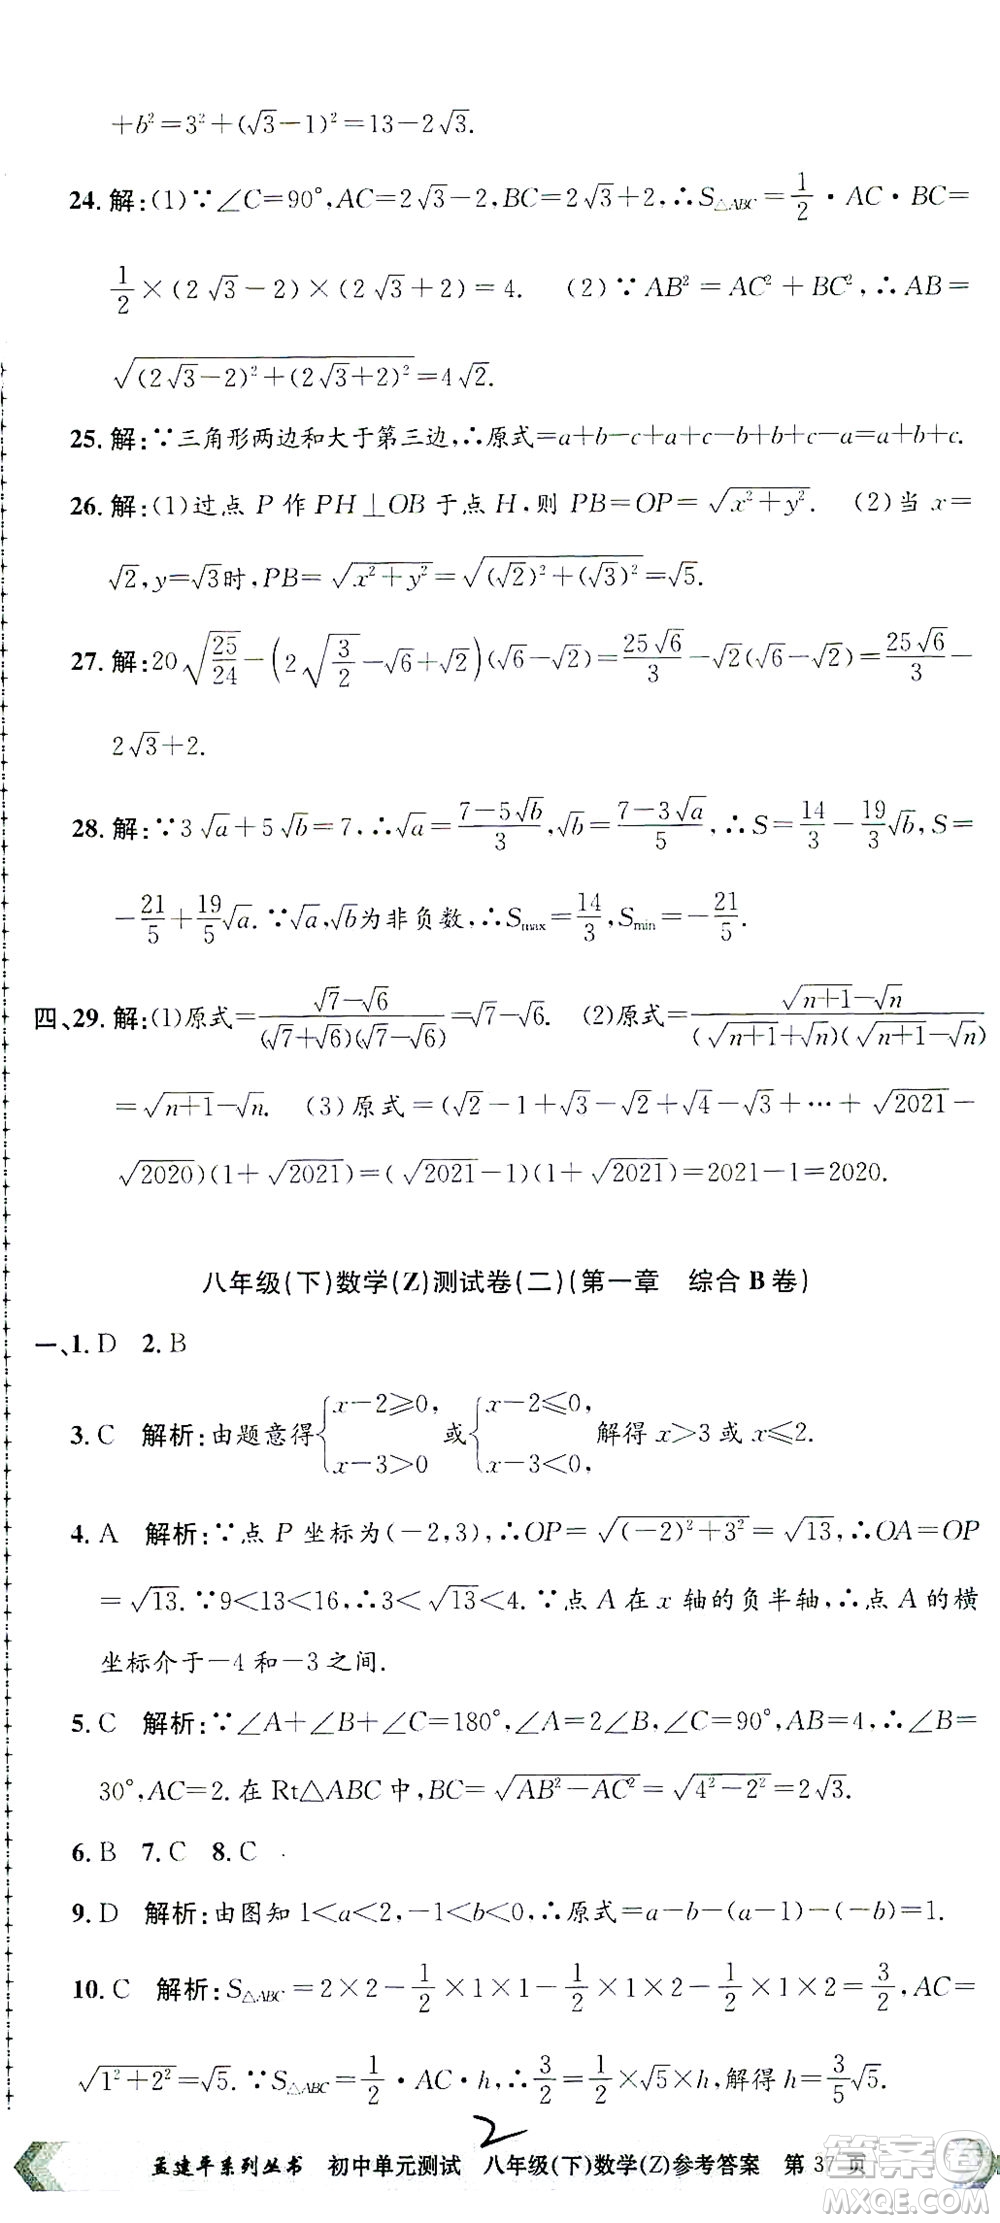 +b²=3²+(√3-1)²=13-2√3.
24.解:(1)∵∠C=90°,AC=2√3-2,BC=2√3+2,∴S△ABC=1/2·AC·BC=
1/2×(2√3-2)×(2√3+2)=4. (2)∵AB²=AC²+BC²,∴AB=
√((2√3-2)²+(2√3+2)²)=4√2.
25.解:∵三角形两边和大于第三边,∴原式=a+b-c+a+c-b+b+c-a=a+b+c.
26.解:(1)过点P作PH⊥OB于点H,则PB=OP=√(x²+y²). (2)当x=
√2,y=√3时,PB=√(x²+y²)=√((√2)²+(√3)²)=√5.
27.解:20√(25/24)-(2√(3/2)-√6+√2)(√6-√2)=25√6/3-√2(√6-√2)=25√6/3-
2√3+2.
28.解:∵3√a+5√b=7,∴√a=(7-5√b)/3,√b=(7-3√a)/5,∴S=14/3-19/3√b,S=
-21/5+19/5√a.∵√a,√b为非负数,∴Smax=14/3,Smin=-21/5.
四、29.解:(1)原式=(√7-√6)/((√7+√6)(√7-√6))=√7-√6. (2)原式=(√(n+1)-√n)/((√(n+1)+√n)(√(n+1)-√n))
=√(n+1)-√n. (3)原式=(√2-1+√3-√2+√4-√3+…+√2021-
√2020)(1+√2021)=(√2021-1)(1+√2021)=2021-1=2020.
八年级(下)数学(Z)测试卷(二)(第一章 综合B卷)
一、1.D 2.B
3.C 解析:由题意得{x-2≥0, x-3>0 或{x-2≤0, x-3<0, 解得x>3或x≤2.
4.A 解析:∵点P坐标为(-2,3),∴OP=√((-2)²+3²)=√13,∴OA=OP
=√13.∵9<13<16,∴3<√13<4.∵点A在x轴的负半轴,∴点A的横
坐标介于-4和-3之间.
5.C 解析:∵∠A+∠B+∠C=180°,∠A=2∠B,∠C=90°,AB=4,∴∠B=
30°,AC=2.在Rt△ABC中,BC=√(AB²-AC²)=√(4²-2²)=2√3.
6.B 7.C 8.C
9.D 解析:由图知1<a<2,-1<b<0,∴原式=a-b-(a-1)-(-b)=1.
10.C 解析:S△ABC=2×2-1/2×1×1-1/2×1×2-1/2×1×2=3/2,AC=
√(1²+2²)=√5.∵S△ABC=1/2·AC·h,∴3/2=1/2×√5×h,解得h=3/5√5.
2
孟建平系列丛书 初中单元测试 八年级(下)数学(Z)参考答案 第37页
答案圈
MXQE.COM